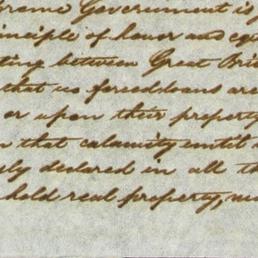 Government is
principle of honor and equ
ting between Great Brit
that no forced loans are
or upon their property
that calamity until
ly declared in all th
hold real property, mo